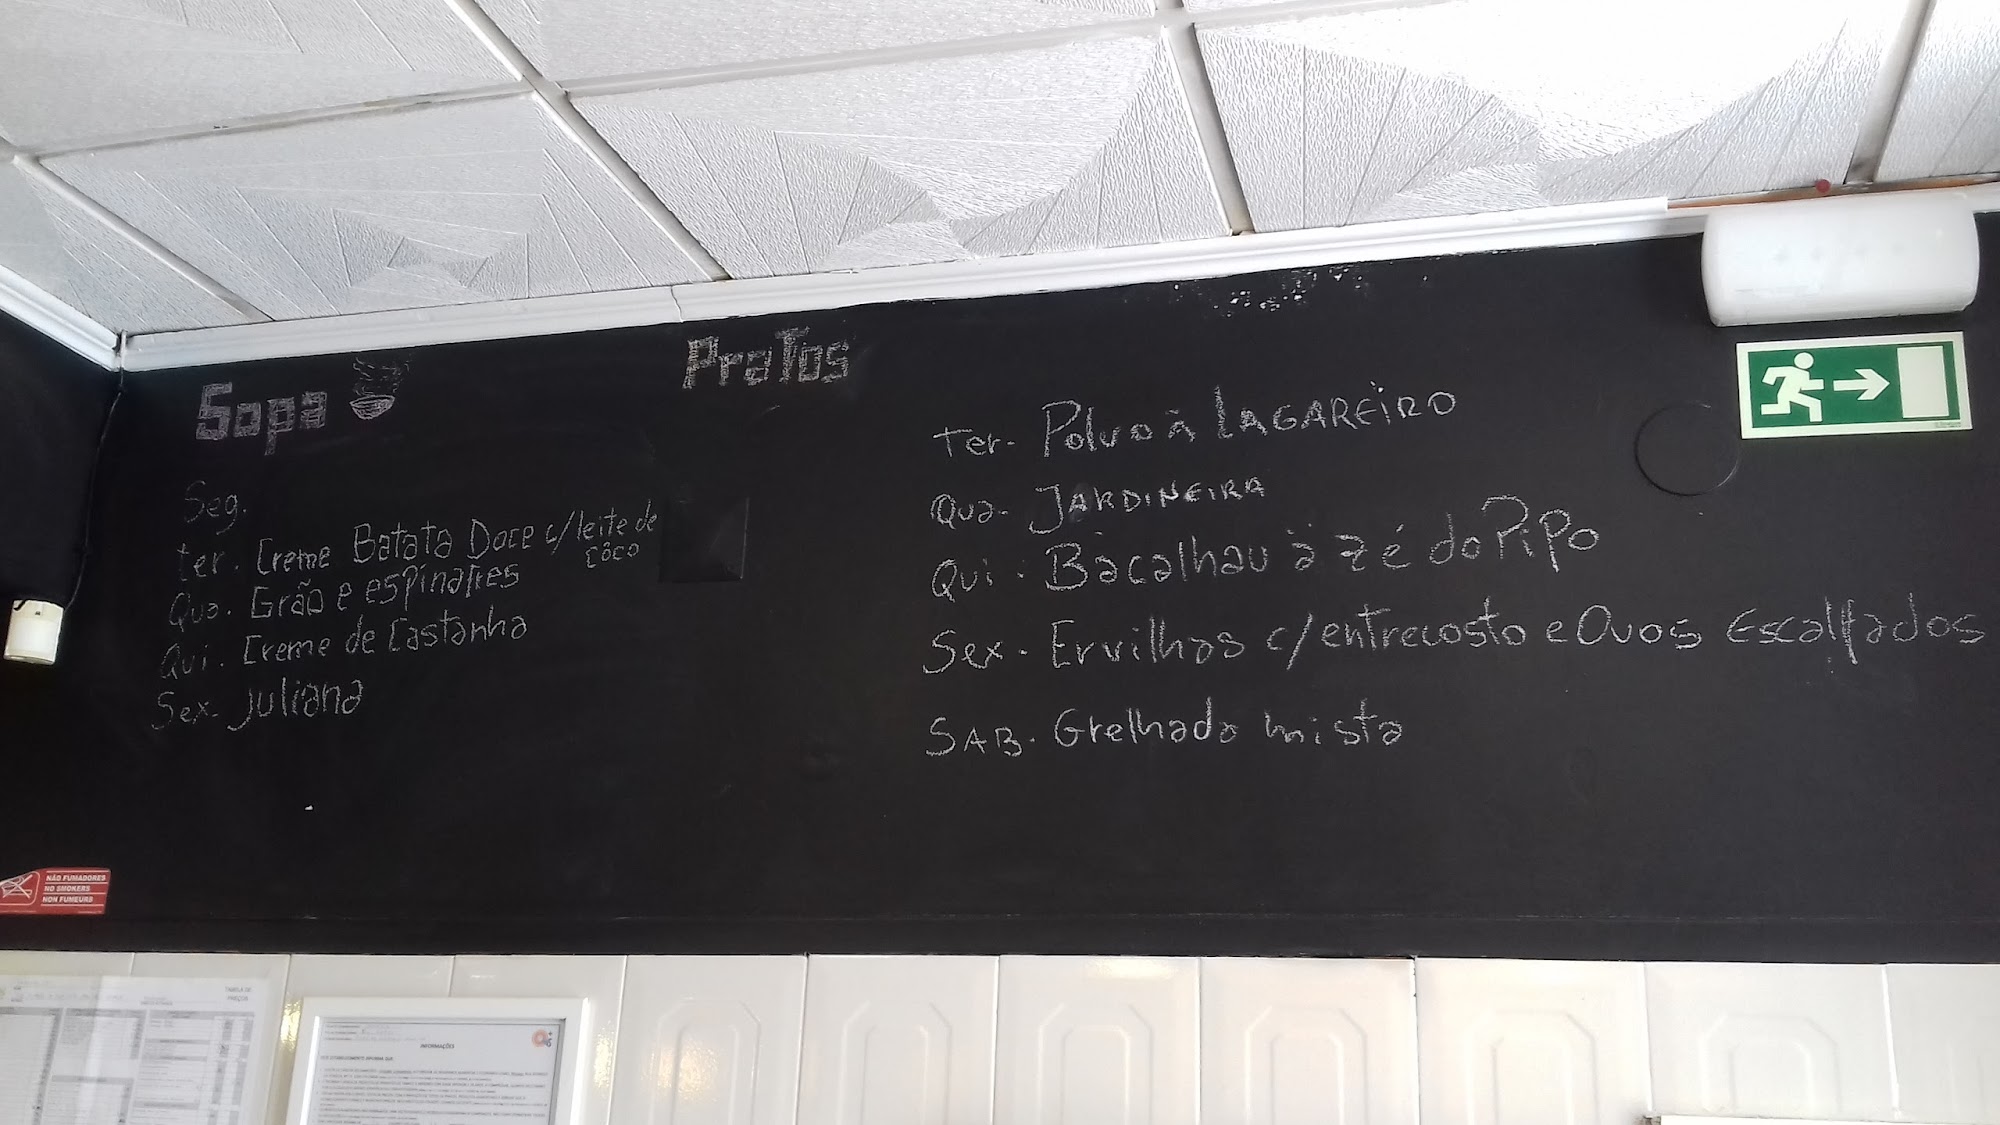 Sopa
Seg.
ter. Creme Batata Doce c/leite de
côco
Qua. Grão e espinafres
Qui. Creme de Castanha
Sex. Juliana
PraTos
Ter- Polvo à LAGAREIRO
Qua- JARDINEIRA
Qui: Bacalhau à zé do PiPo
Sex- Ervilhas c/entrecosto e Ovos Escalfados
SAB. Grelhada mista
NÃO FUMADORES
NO SMOKERS
NON FUMEURS
TABELA DE
PREÇOS
INFORMAÇÕES